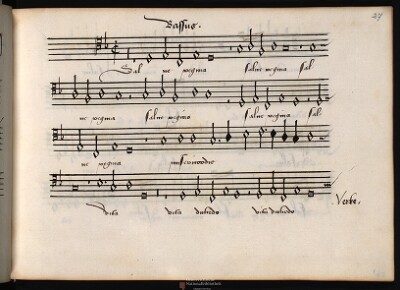 Bassus.
29
Sal ve regina salve regina sal
ve regina salve regina salve regina sal
ve regina misericordie
vita vita dulcedo vita dulcedo
Verte.